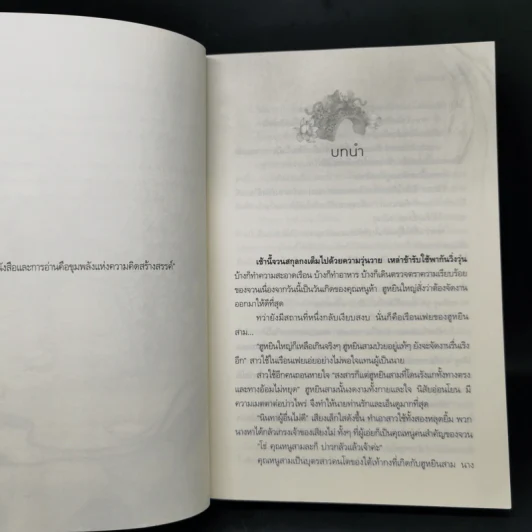 นังสือและการอ่านคือขุมพลังแห่งความคิดสร้างสรรค์"
บทนำ
เช้านี้จวนสกุลกงเต็มไปด้วยความวุ่นวาย เหล่าข้ารับใช้พากันวิ่งวุ่น
บ้างก็ทำความสะอาดเรือน บ้างก็ทำอาหาร บ้างก็เดินตรวจตราความเรียบร้อย
ของจวนเนื่องจากวันนี้เป็นวันเกิดของคุณหนูห้า ฮูหยินใหญ่สั่งว่าต้องจัดงาน
ออกมาให้ดีที่สุด
ทว่ายังมีสถานที่หนึ่งกลับเงียบสงบ นั่นก็คือเรือนเฟยของฮูหยิน
สาม...
"ฮูหยินใหญ่ก็เหลือเกินจริงๆ ฮูหยินสามป่วยอยู่แท้ๆ ยังจะจัดงานรื่นเริง
อีก" สาวใช้ในเรือนเฟยเอ่ยอย่างไม่พอใจแทนผู้เป็นนาย
สาวใช้อีกคนถอนหายใจ "สงสารก็แต่ฮูหยินสามที่โดนรังแกทั้งทางตรง
และทางอ้อมไม่หยุด" ฮูหยินสามนั้นงดงามทั้งกายและใจ นิสัยอ่อนโยน มี
ความเมตตาต่อบ่าวไพร่ จึงทำให้นายท่านรักและเอ็นดูมากที่สุด
"นินทาผู้อื่นไม่ดี" เสียงเล็กใสดังขึ้น ทำเอาสาวใช้ทั้งสองหลุดยิ้ม พวก
นางหาได้กลัวเกรงเจ้าของเสียงไม่ ทั้งๆ ที่ผู้เอ่ยก็เป็นคุณหนูคนสำคัญของจวน
"โธ่ คุณหนูสามละก็ บ่าวกลัวแล้วเจ้าค่ะ"
คุณหนูสามเป็นบุตรสาวคนโตของใต้เท้ากงที่เกิดกับฮูหยินสาม นาง